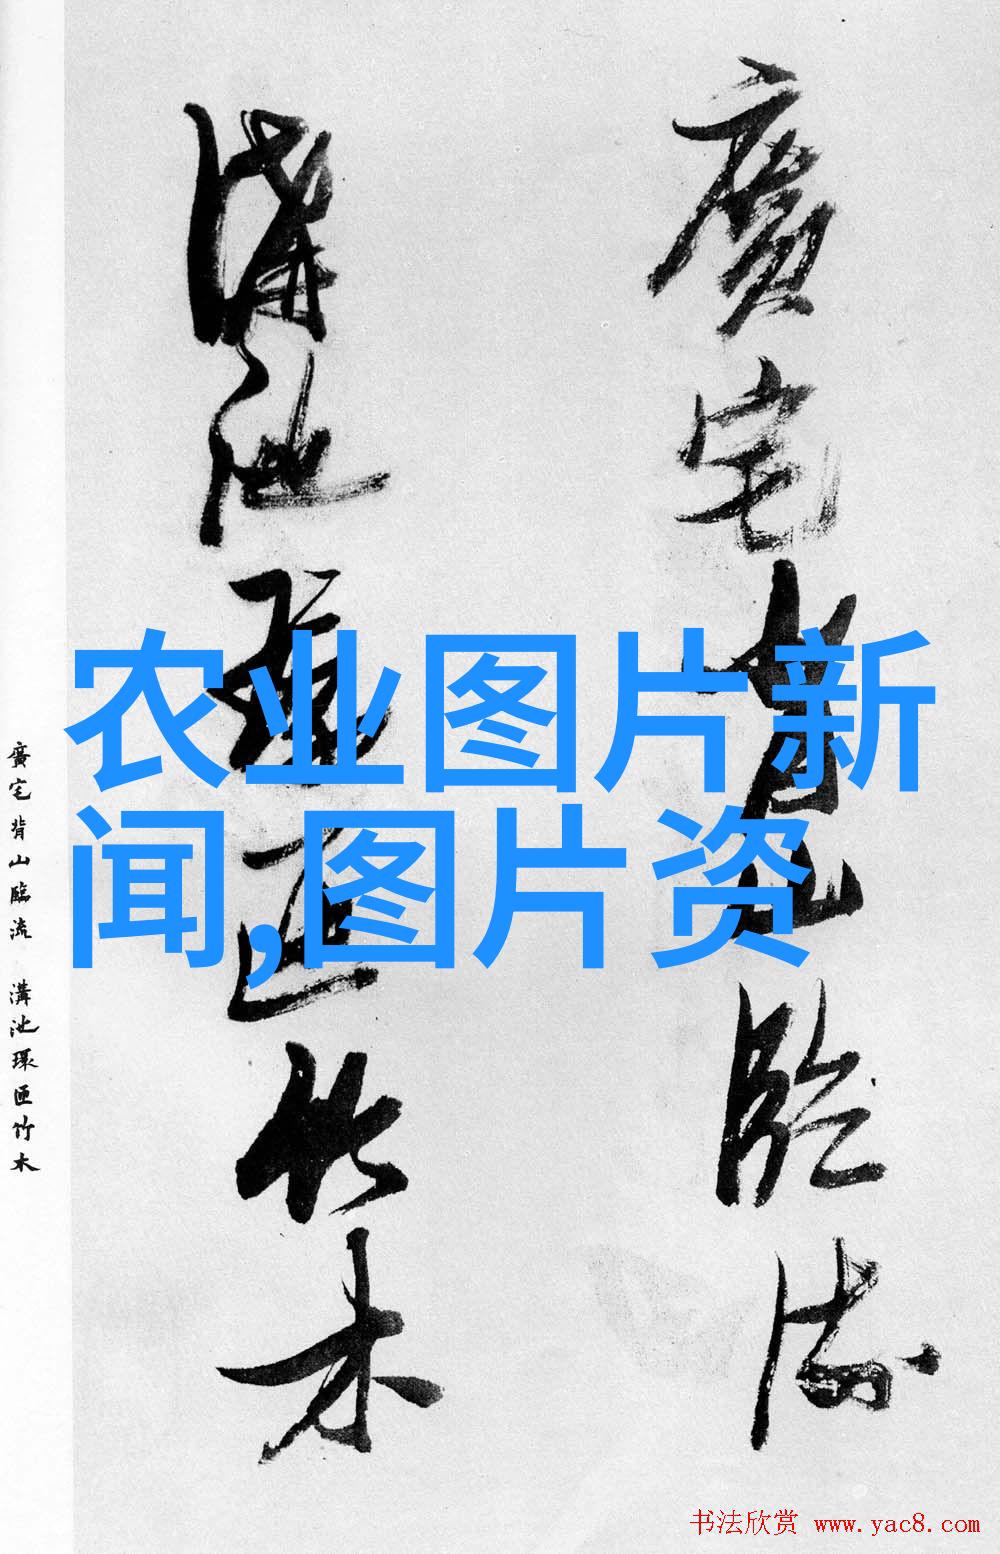 廣宅背山臨流
溝池環匝竹木
农业图片新
闻,图片资
廣宅背山臨流 溝池環匝竹木
书法欣赏 www.yac8.com